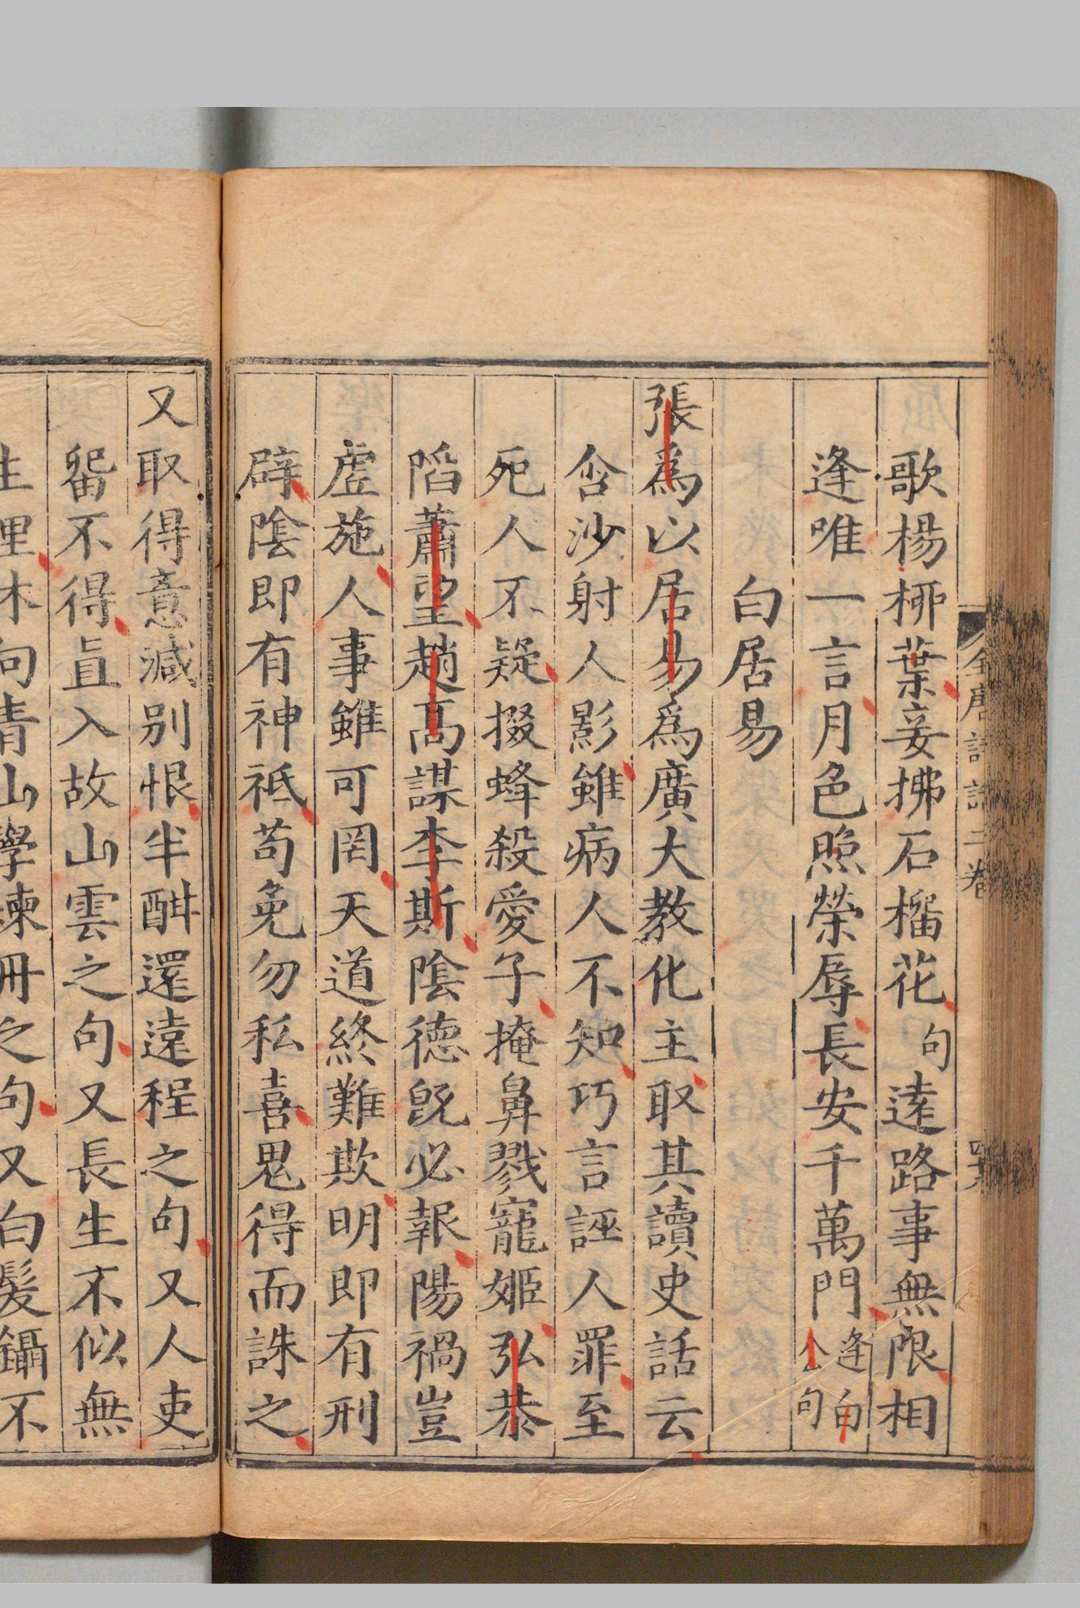 歌楊柳葉妾拂石榴花句遠路事無限相
逢唯一言月色照榮辱長安千萬門逢白
公句
白居易
張爲以居易爲廣大教化主取其讀史話云
含沙射人影雖病人不知巧言誣人罪至
死人不疑掇蜂殺愛子掩鼻戮寵姬弘恭
陷蕭望趙高謀李斯陰德旣必報陽禍豈
虛施人事雖可罔天道終難欺明即有刑
辟陰即有神祗苟免勿私喜鬼得而誅之
又取得意減別恨半酣還遠程之句又人吏
留不得直入故山雲之句又長生不似無
生理休向青山學煉丹之句又白髮鑷不
全唐詩話二卷